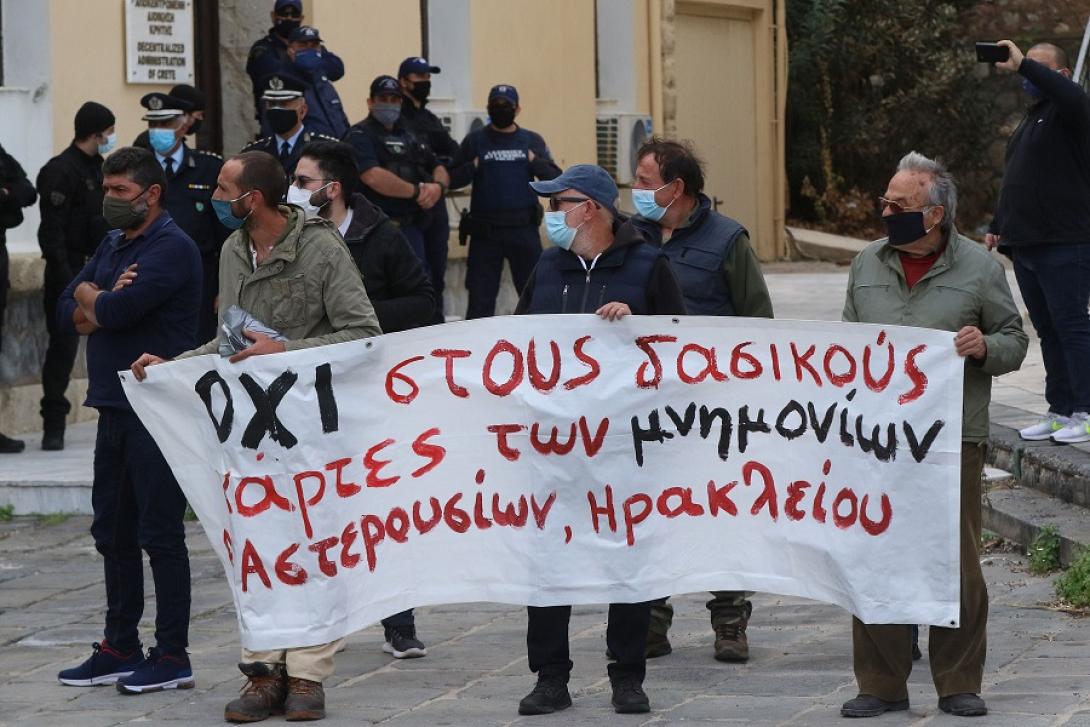 ΑΠΟΚΕΝΤΡΩΜΕΝΗ
ΔΙΟΙΚΗΣΗ
ΚΡΗΤΗΣ
DECENTRALIZED
ADMINISTRATION
OF CRETE
ΕΛΛΗΝΙΚΗ
ΟΧΙ στους δασικούς
χάρτες των μνημονίων
Αστερουσίων, Ηρακλείου